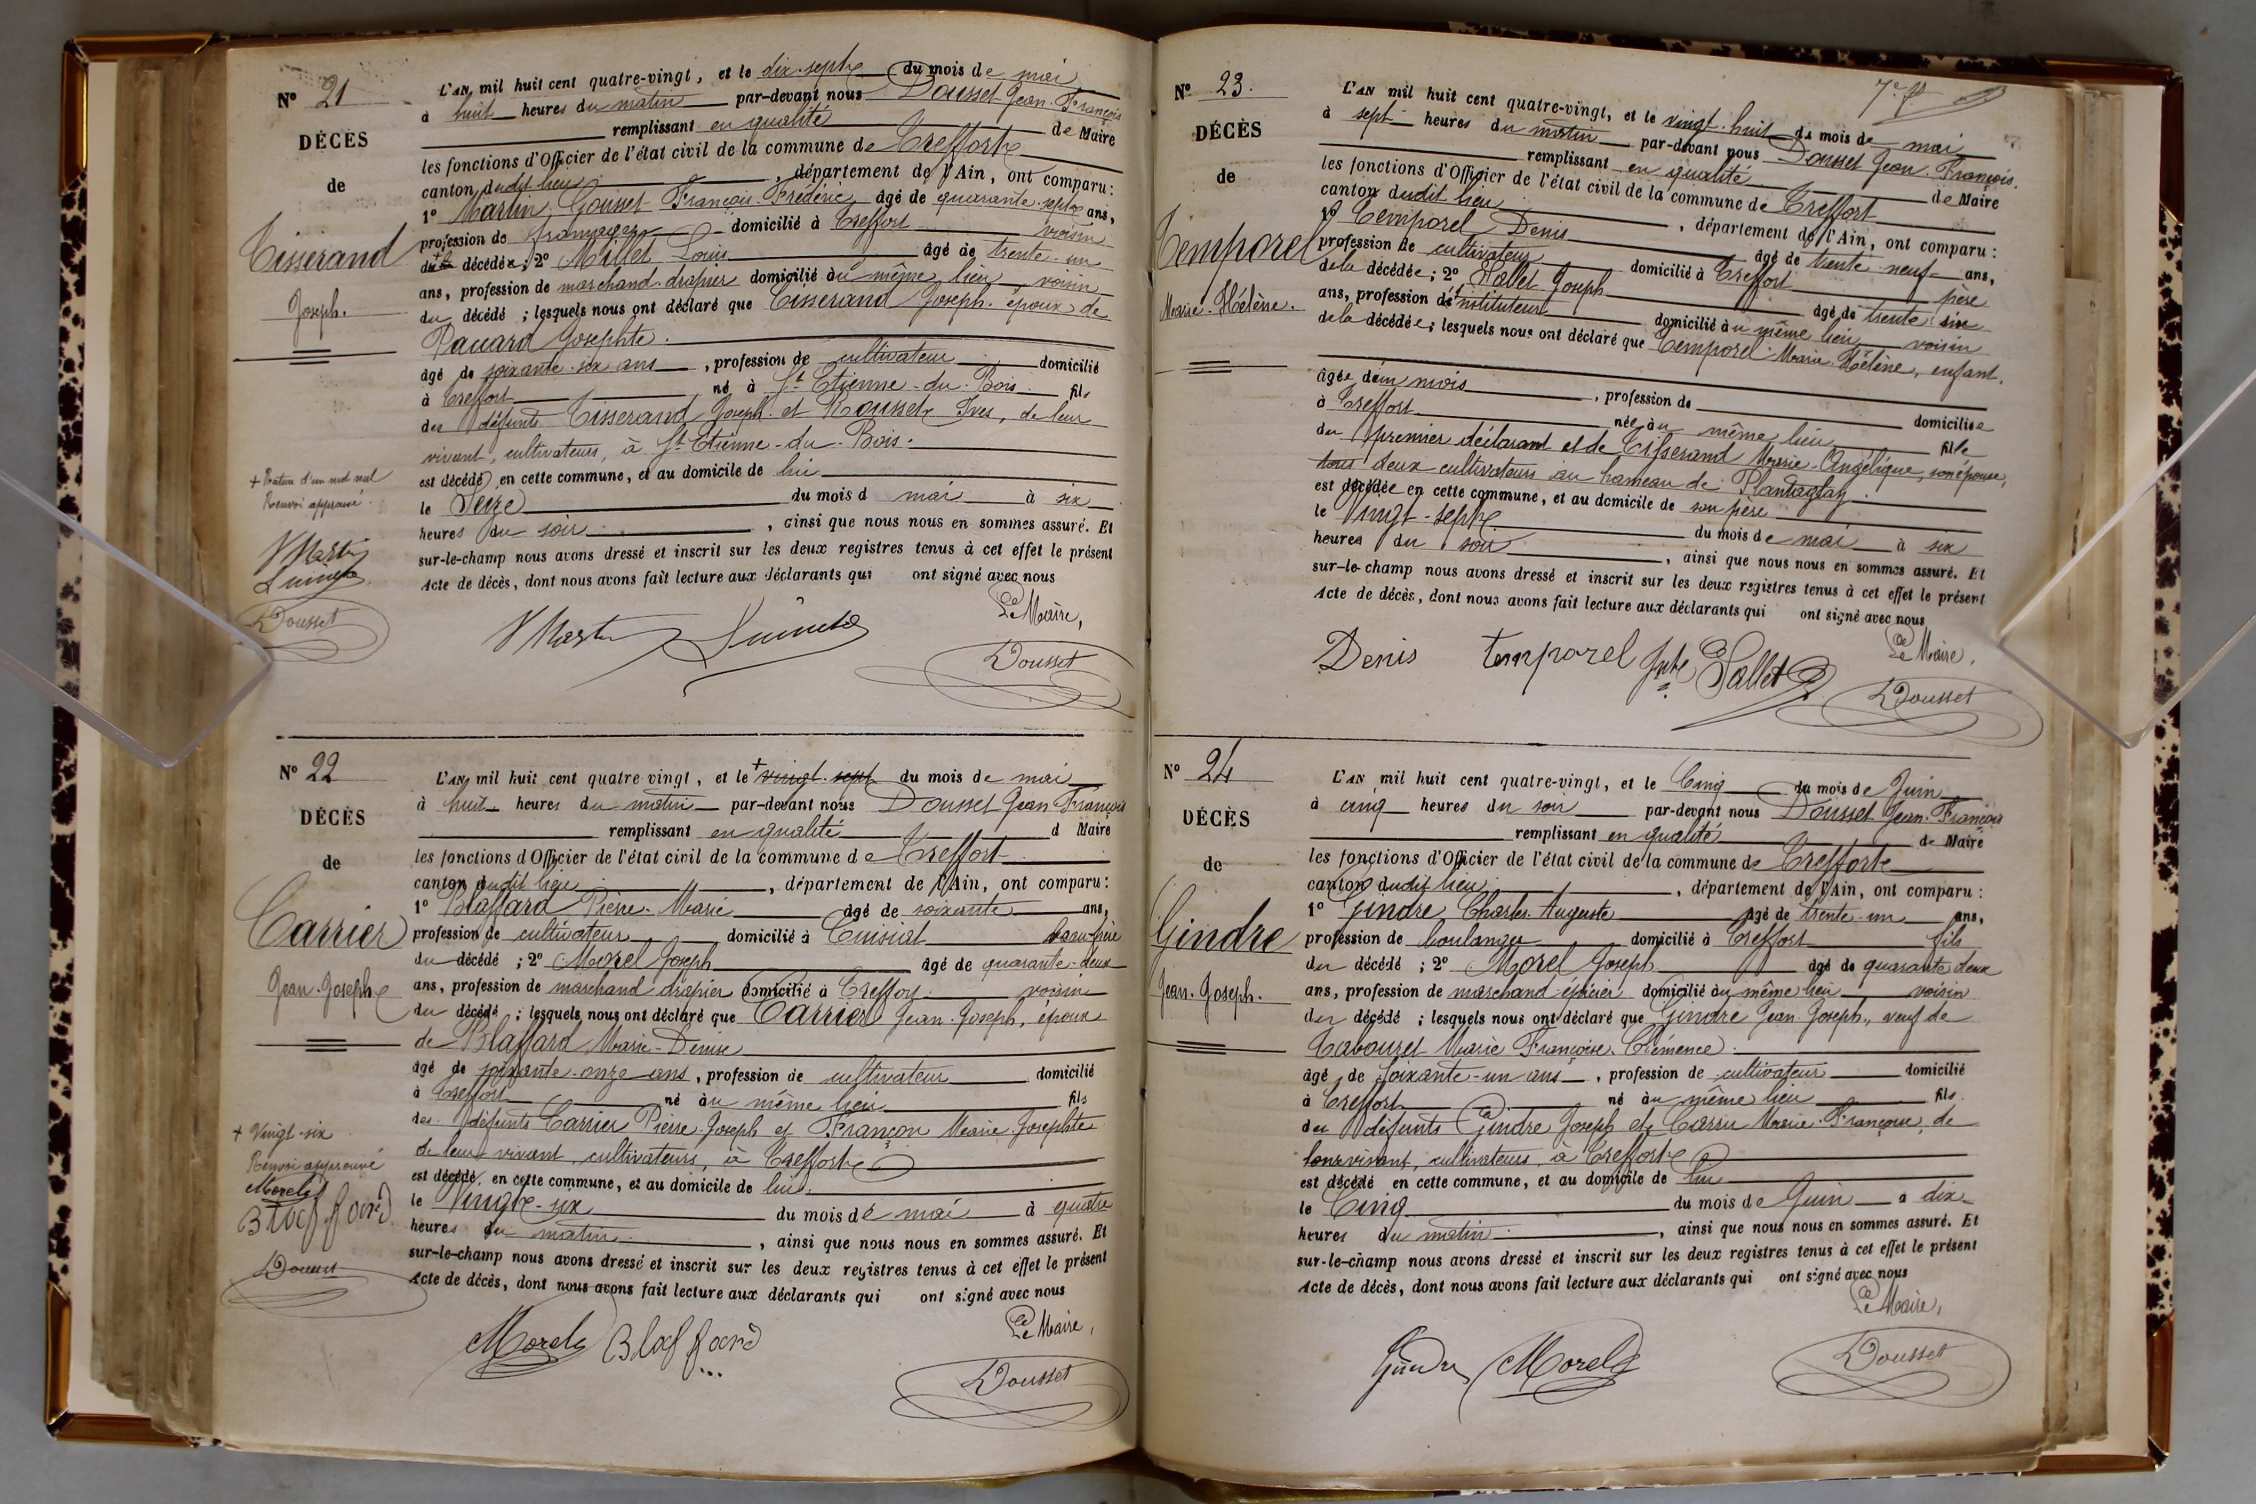 N° 21
DÉCÈS
de
Tisserand
Joseph.
L'AN mil huit cent quatre-vingt, et le dix-sept du mois de mai
à huit heures du matin par-devant nous Dousset Jean-François
remplissant en qualité de Maire
les fonctions d'Officier de l'état civil de la commune de Treffort
canton dudit lieu, département de l'Ain, ont comparu:
1° Martin Gousset François Frédéric âgé de quarante-sept ans,
profession de domicilié à Treffort voisin
du décédé; 2° Millet Louis âgé de trente-un
ans, profession de marchand drapier domicilié au même lieu voisin
du décédé; lesquels nous ont déclaré que Tisserand Joseph, époux de
Josephte.
âgé de soixante-six ans, profession de cultivateur domicilié
à Treffort né à St Etienne-du-Bois fils
des défunts Tisserand Joseph et Rousset Ives, de leur
vivant, cultivateurs, à St Etienne-du-Bois.
est décédé en cette commune, et au domicile de lui
le Seize du mois d mai à six
heures du soir, ainsi que nous nous en sommes assuré. Et
sur-le-champ nous avons dressé et inscrit sur les deux registres tenus à cet effet le présent
Acte de décès, dont nous avons fait lecture aux déclarants qui ont signé avec nous
Le Maire,
Dousset
+ Rature d'un mot nul
Renvoi approuvé.
Dousset
N° 22
DÉCÈS
de
Carrier
Jean-Joseph
L'AN mil huit cent quatre vingt, et le + vingt-sept du mois de mai
à huit heures du matin par-devant nous Dousset Jean François
remplissant en qualité d Maire
les fonctions d'Officier de l'état civil de la commune de Treffort
canton dudit lieu, département de l'Ain, ont comparu:
1° Blaffard Pierre-Marie âgé de soixante ans,
profession de cultivateur domicilié à Cuisiat beau-frère
du décédé; 2° Morel Joseph âgé de quarante-deux
ans, profession de marchand drapier domicilié à Treffort voisin
du décédé; lesquels nous ont déclaré que Carrier Jean-Joseph, époux
de Blaffard Marie-Denise
âgé de soixante-onze ans, profession de cultivateur domicilié
à Treffort né au même lieu fils
des défunts Carrier Pierre Joseph et Françon Marie Josephte
de leur vivant, cultivateurs, à Treffort
est décédé en cette commune, et au domicile de lui.
le Vingt-six du mois de mai à quatre
heures du matin, ainsi que nous nous en sommes assuré. Et
sur-le-champ nous avons dressé et inscrit sur les deux registres tenus à cet effet le présent
Acte de décès, dont nous avons fait lecture aux déclarants qui ont signé avec nous
Le Maire,
Morel Blaffard
Dousset
+ Vingt-six
Renvoi approuvé
Morel
Blaffard
Dousset
7e
N° 23.
DÉCÈS
de
Temporel
Marie-Hélène.
L'AN mil huit cent quatre-vingt, et le vingt-huit du mois de mai
à sept heures du matin par-devant nous Dousset Jean-François.
remplissant en qualité de Maire
les fonctions d'Officier de l'état civil de la commune de Treffort
canton dudit lieu, département de l'Ain, ont comparu:
1° Temporel Denis âgé de trente-neuf ans,
profession de cultivateur domicilié à Treffort père
de la décédée; 2° Sallet Joseph âgé de trente six
ans, profession d'instituteur domicilié au même lieu voisin
de la décédée; lesquels nous ont déclaré que Temporel Marie Hélène, enfant.
âgée d'un mois, profession de domiciliée
à Treffort née au même lieu fille
du premier déclarant et de Tisserand Marie-Angélique, son épouse,
tous deux cultivateurs au hameau de Plantaglay
est décédée en cette commune, et au domicile de son père
le Vingt-sept du mois de mai à six
heures du soir, ainsi que nous nous en sommes assuré. Et
sur-le-champ nous avons dressé et inscrit sur les deux registres tenus à cet effet le présent
Acte de décès, dont nous avons fait lecture aux déclarants qui ont signé avec nous
Le Maire,
Denis temporel Sallet
Dousset
N° 24
DÉCÈS
de
Gindre
Jean-Joseph.
L'AN mil huit cent quatre-vingt, et le Cinq du mois de Juin
à cinq heures du soir par-devant nous Dousset Jean-François
remplissant en qualité de Maire
les fonctions d'Officier de l'état civil de la commune de Treffort
canton dudit lieu, département de l'Ain, ont comparu:
1° Gindre Charles Auguste âgé de trente-un ans,
profession de boulanger domicilié à Treffort fils
du décédé; 2° Morel Joseph âgé de quarante deux
ans, profession de marchand épicier domicilié au même lieu voisin
du décédé; lesquels nous ont déclaré que Gindre Jean-Joseph, veuf de
Tabouret Marie Françoise Clémence.
âgé de soixante-un ans, profession de cultivateur domicilié
à Treffort né au même lieu fils.
des défunts Gindre Joseph et Carru Marie-Françoise, de
leur vivant, cultivateurs, à Treffort
est décédé en cette commune, et au domicile de lui
le Cinq du mois de Juin à dix
heures du matin, ainsi que nous nous en sommes assuré. Et
sur-le-champ nous avons dressé et inscrit sur les deux registres tenus à cet effet le présent
Acte de décès, dont nous avons fait lecture aux déclarants qui ont signé avec nous
Le Maire,
Gindre Morel
Dousset